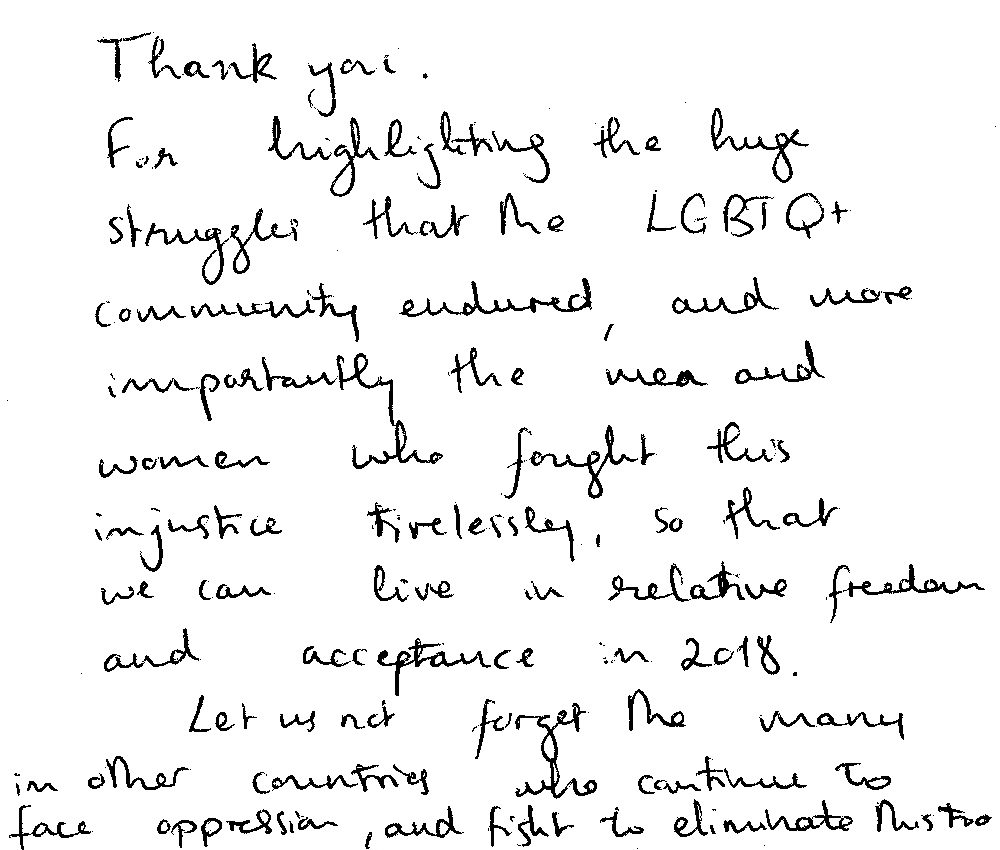 Thank you.
For highlighting the huge
struggles that the LGBTQ+
community endured, and more
importantly the men and
women who fought this
injustice tirelessley, so that
we can live in relative freedom
and acceptance in 2018.
Let us not forget the many
in other countries who continue to
face oppression, and fight to eliminate this too